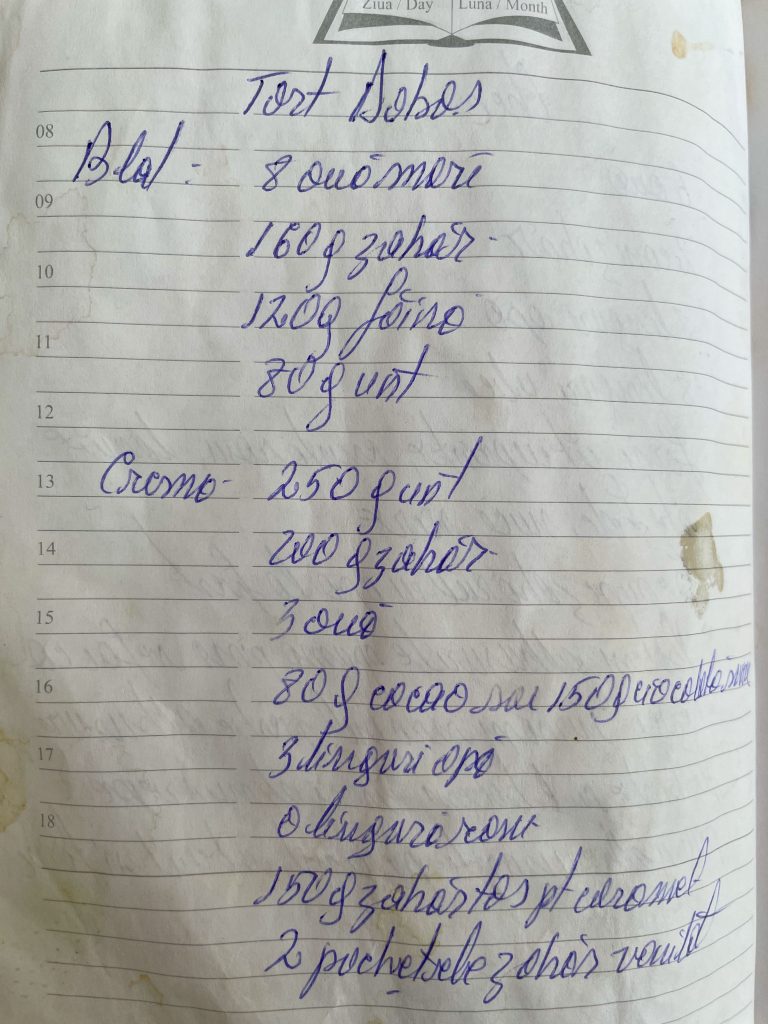 Ziua / Day Luna / Month
Tort Dobos
08
Blat : 8 ouă mari
09
160g zahăr
10
120g făină
11
80g unt
12
13 Cremă - 250g unt
14 200g zahăr
15 3 ouă
16 80g cacao sau 150g ciocolată
17 3 linguri apă
18 o lingură rom
150g zahăr tos pt caramel
2 pachețele zahăr vanilat